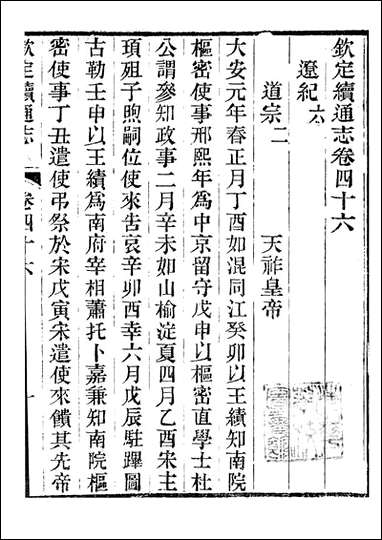 欽定續通志卷四十六
遼紀六
道宗二　天祚皇帝
大安元年春正月丁酉如混同江癸卯以王績知南院
樞密使事邢熙年爲中京留守戊申以樞密直學士杜
公謂參知政事二月辛未如山榆淀夏四月乙酉宋主
頊殂子煦嗣位使來告哀辛卯西幸六月戊辰駐蹕圖
古勒壬申以王績爲南府宰相蕭托卜嘉兼知南院樞
密使事丁丑遣使弔祭於宋戊寅宋遣使來饋其先帝
欽定續通志
卷四十六
一